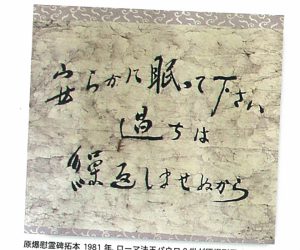 安らかに眠って下さい
過ちは
繰返しませぬから
原爆慰霊碑拓本 1981年、ローマ法王パウロ